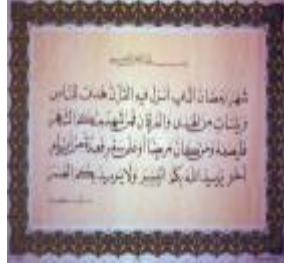 شهر رمضان الذي أنزل فيه القرآن هدى للناس
وبينات من الهدى والفرقان فمن شهد منكم الشهر
فليصمه ومن كان مريضا أو على سفر فعدة من أيام
أخر يريد الله بكم اليسر ولا يريد بكم العسر